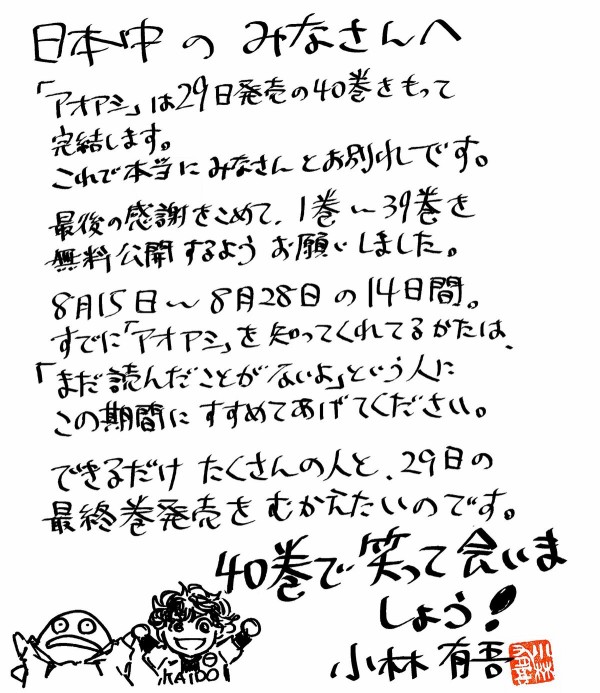 日本中の みなさんへ
「アオアシ」は29日発売の40巻をもって
完結します。
これで本当に みなさんとお別れです。
最後の感謝をこめて、1巻〜39巻を
無料公開するよう お願いしました。
8月15日〜8月28日の14日間。
すでに「アオアシ」を知ってくれてるかたは、
「まだ読んだことがないよ」という人に
この期間に すすめてあげてください。
できるだけ たくさんの人と、29日の
最終巻発売を むかえたいのです。
40巻で笑って会いま
しょう!
小林 有吾
KAIDO